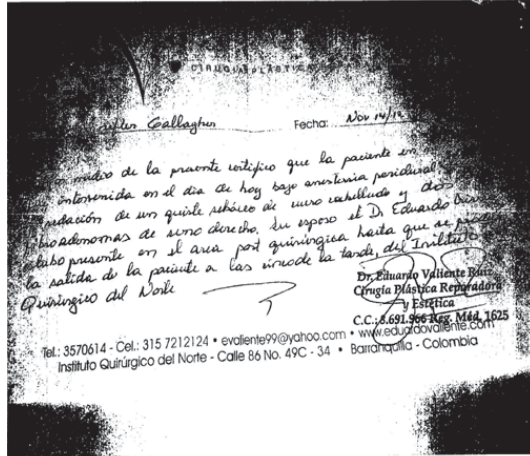 CIRUGIA PLASTICA
Callaghan Fecha: Nov 14/12
medio de la presente certifico que la paciente en
intervenida en el dia de hoy bajo anestesia peridural
sedación de un quiste sebáceo de cuero cabelludo y dos
fibroadenomas de seno derecho. Su esposo el D. Eduardo
estubo presente en el area post quirúrgica hasta que se
la salida de la paciente a las cinco de la tarde, del Instituto
Quirúrgico del Norte
Dr. Eduardo Valiente Ruiz
Cirugía Plástica Reparadora
y Estética
C.C.: 8.691.966 Reg. Méd. 1625
Tel.: 3570614 - Cel.: 315 7212124 • evaliente99@yahoo.com • www.eduardovaliente.com
Instituto Quirúrgico del Norte - Calle 86 No. 49C - 34 • Barranquilla - Colombia